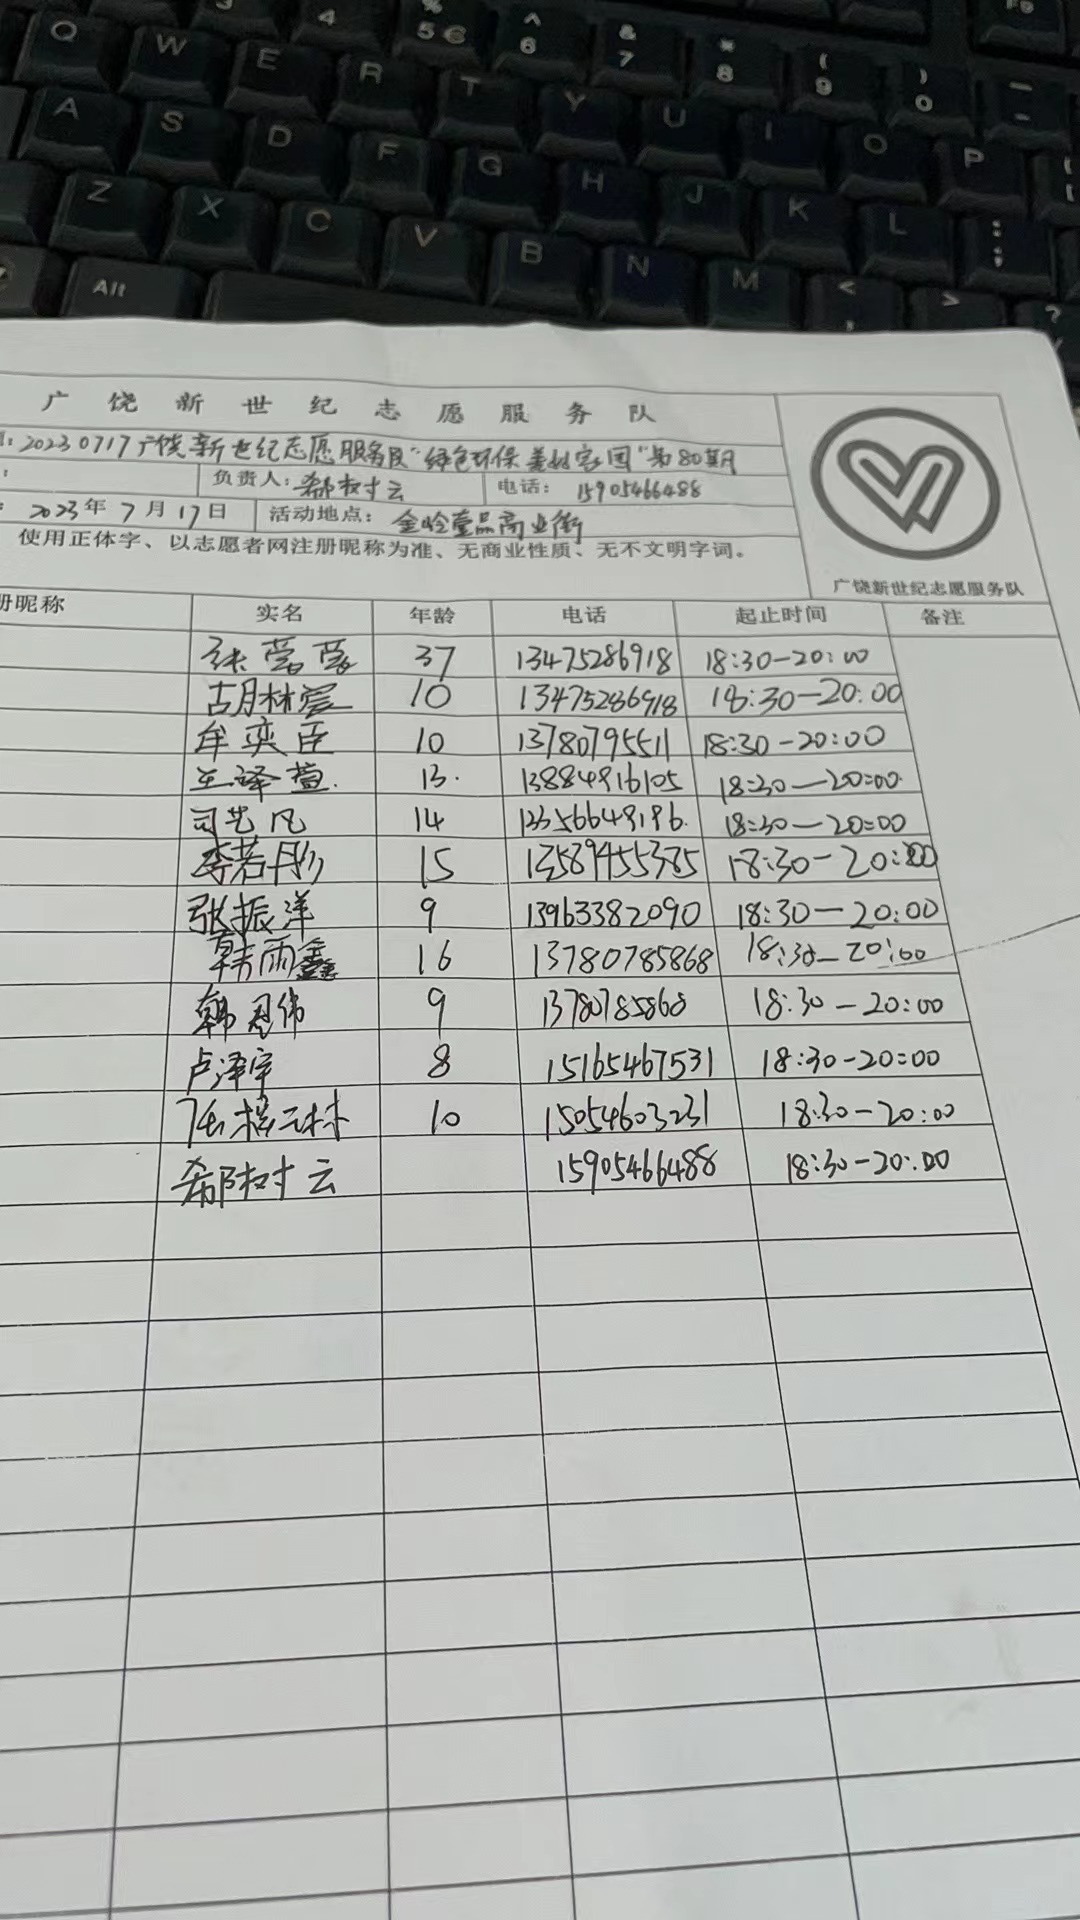 % 3 4 5 € ^ 6 & 7 * 8 ( 9 ) 0 _ - F9
Q W E R T Y U I O P
A S D F G H J K L : ;
Z X C V B N M < > ?
Alt
广饶新世纪志愿服务队
: 20230717广饶新世纪志愿服务队"绿色环保 美丽家园"第80期
: 负责人: 郗树云 电话: 15905466488
: 2023年7月17日 活动地点: 金岭壹品商业街
使用正体字、以志愿者网注册昵称为准、无商业性质、无不文明字词。
广饶新世纪志愿服务队
册昵称 实名 年龄 电话 起止时间 备注
张莹莹 37 13475286918 18:30-20:00
胡林 10 13475286918 18:30-20:00
牟奕臣 10 13780795511 18:30-20:00
王译萱. 13. 13884916105 18:30-20:00
司艺凡 14 13356649196. 18:30-20:00
李若彤 15 13589455385 18:30-20:00
张振洋 9 13963382090 18:30-20:00
韩雨鑫 16 13780785868 18:30-20:00
韩恩伟 9 13780785868 18:30-20:00
卢泽宇 8 15165467531 18:30-20:00
10 15054603231 18:30-20:00
郗树云 15905466488 18:30-20:00